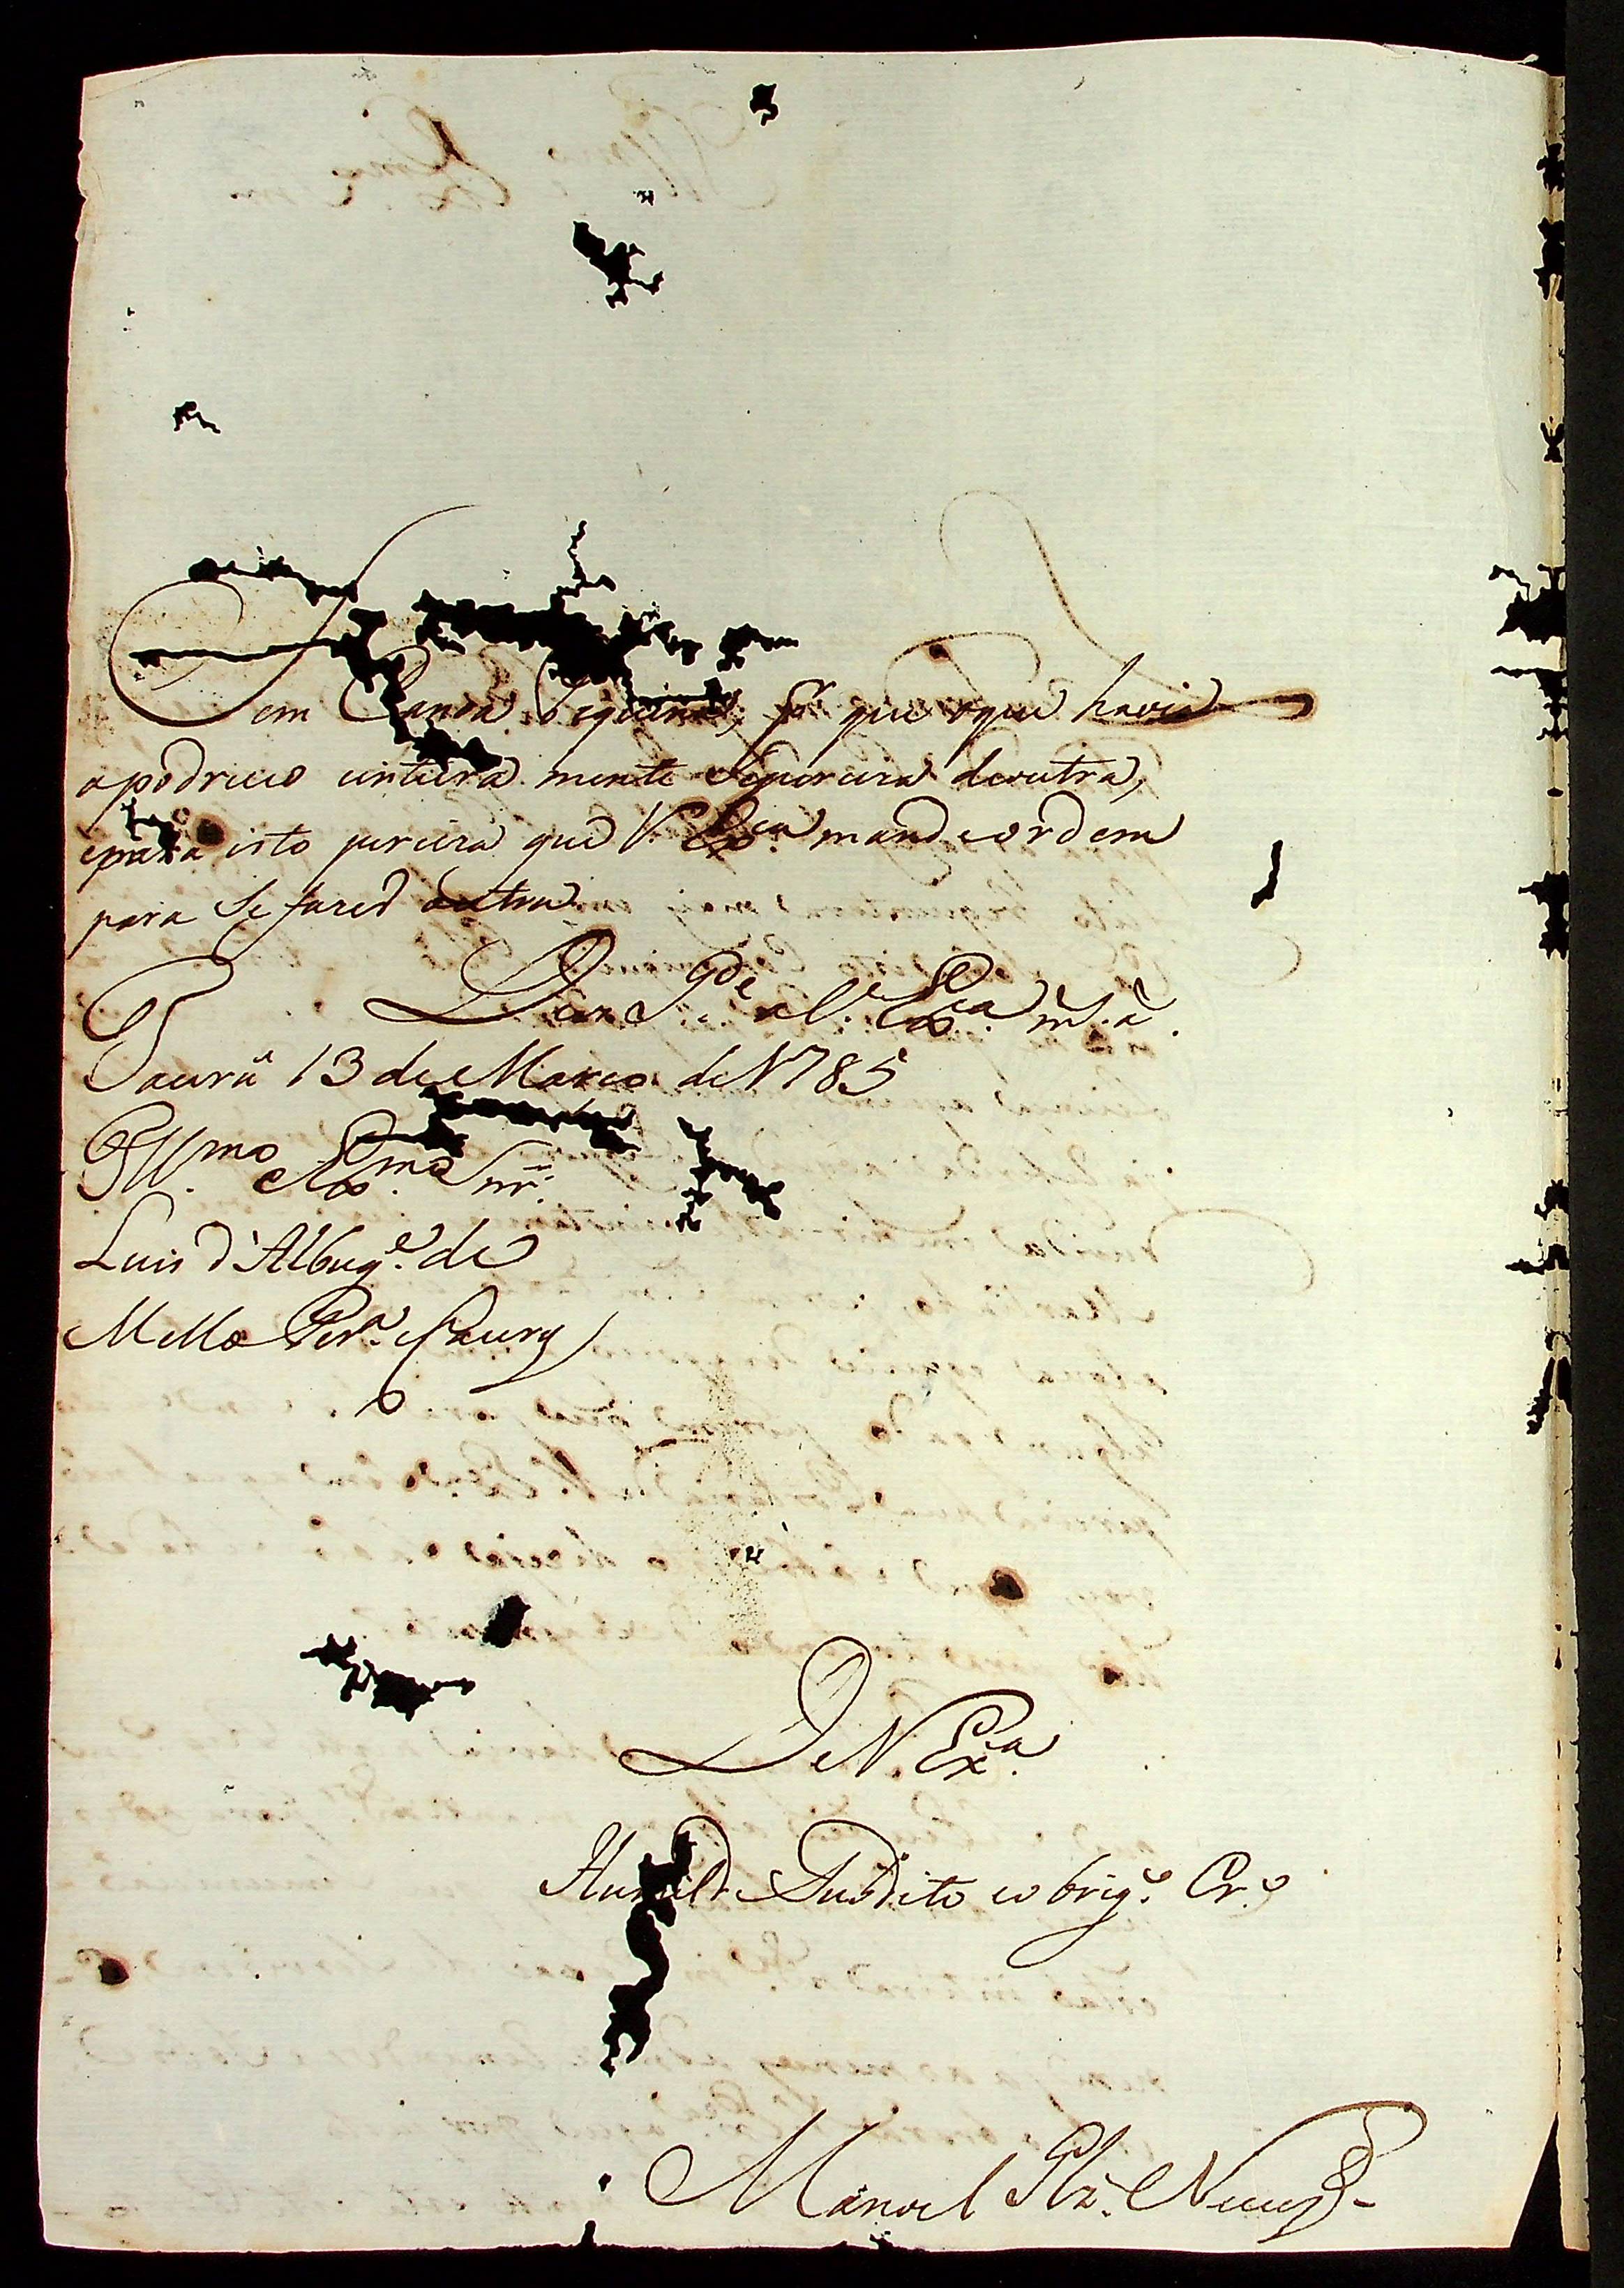 Sem Canoa Pequena, pr que o que havia
apodreceo enteira mente Sepercira deoutra,
epara isto perciza que V. Exca. mandeordem
para Se fazer outra
Deos Gde. a V. Exca. m. a.
Jaurú 13 de Março de 1785
Illmo. e Exmo. Snr.
Luis d'Albuqe. de
Mello Pera. e Caceres
De V. Exca.
Humilde Subdito eobrigo. Cro.
Manoel